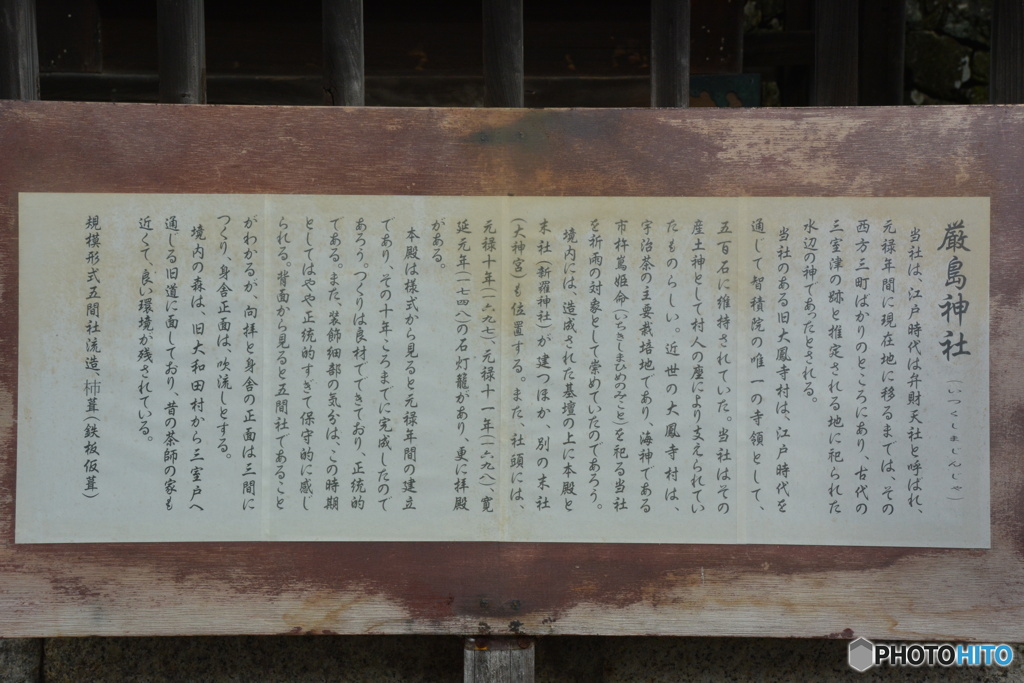 厳島神社(いつくしまじんじゃ)
当社は、江戸時代は弁財天社と呼ばれ、
元禄年間に現在地に移るまでは、その
西方三町ばかりのところにあり、古代の
三室津の跡と推定される地に祀られた
水辺の神であったとされる。
当社のある旧大鳳寺村は、江戸時代を
通じて智積院の唯一の寺領として、
五百石に維持されていた。当社はその
産土神として村人の座により支えられてい
たものらしい。近世の大鳳寺村は、
宇治茶の主要栽培地であり、海神である
市杵嶌姫命(いちきしまひめのみこと)を祀る当社
を祈雨の対象として崇めていたのであろう。
境内には、造成された基壇の上に本殿と
末社(新羅神社)が建つほか、別の末社
(大神宮)も位置する。また、社頭には、
元禄十年(一六九七)、元禄十一年(一六九八)、寛
延元年(一七四八)の石灯籠があり、更に拝殿
がある。
本殿は様式から見ると元禄年間の建立
であり、その十年ころまでに完成したので
あろう。つくりは良材でできており、正統的
である。また、装飾細部の気分は、この時期
としてはやや正統的すぎて保守的に感じ
られる。背面から見ると五間社であること
がわかるが、向拝と身舎の正面は三間に
つくり、身舎正面は、吹流しとする。
境内の森は、旧大和田村から三室戸へ
通じる旧道に面しており、昔の茶師の家も
近くて、良い環境が残されている。
規模形式 五間社流造、柿葺(鉄板仮葺)
PHOTOHITO